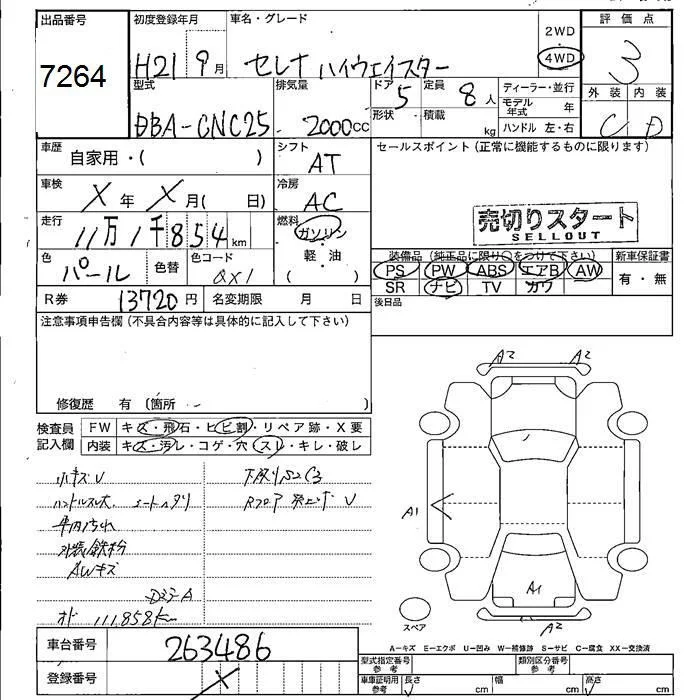 出品番号 初度登録年月 車名・グレード 評価点
7264 H21 9月 セレナ ハイウェイスター 2WD 4WD 3
型式 排気量 ドア 5 定員 8人 ディーラー・並行 外装 内装
モデル年式 年
DBA-CNC25 2000cc 形状 積載 kg ハンドル 左・右 C D
車歴 自家用・( ) シフト AT セールスポイント(正常に機能するものに限ります)
車検 X年 X月( 日) 冷房 AC
走行 11万1千854km 燃料 ガソリン 売切りスタート
SELLOUT
軽・油
色 パール 色替 色コード QX1 ( ) 装備品(純正品に限り○をつけて下さい) 新車保証書
PS PW ABS エアB AW 有・無
SR ナビ TV カワ
R券 13720円 名変期限 月 日 後日品
注意事項申告欄(不具合内容等は具体的に記入して下さい)
修復歴 有 〔箇所 〕
検査員記入欄 FW キズ・飛石・ヒビ割・リペア跡・X要
内装 キズ・汚レ・コゲ・穴・スレ・キレ・破レ
小キズU
ハンドルスレ大 シートヘタリ
車内汚れ
外装鉄粉
AWキズ
111,858km
A2 A2
A1
A1
A2
スペア
A-キズ E-エクボ U-凹み W-補修跡 S-サビ C-腐食 XX-交換済
車台番号 263486
登録番号 X
型式指定番号 参考 類別区分番号 参考
車庫証明用 参考 長さ cm 幅 cm 高さ cm